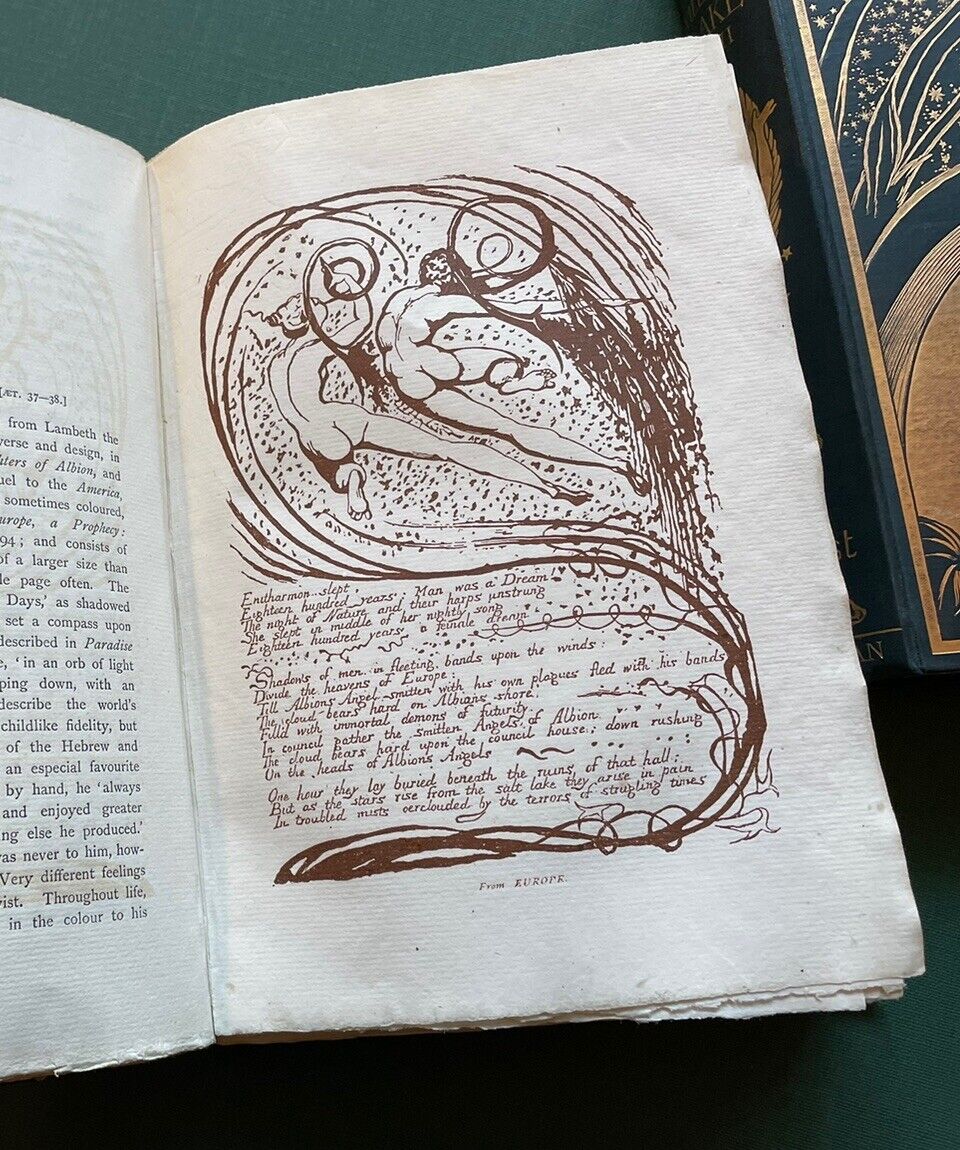 [ÆT. 37—38.]
from Lambeth the
verse and design, in
hters of Albion, and
uel to the America,
sometimes coloured,
urope, a Prophecy:
94; and consists of
of a larger size than
le page often. The
Days,' as shadowed
set a compass upon
described in Paradise
e, 'in an orb of light
ping down, with an
describe the world's
childlike fidelity, but
of the Hebrew and
an especial favourite
by hand, he 'always
and enjoyed greater
ng else he produced.'
was never to him, how-
Very different feelings
ist. Throughout life,
in the colour to his
Enitharmon slept,
Eighteen hundred years: Man was a Dream!
The night of Nature and their harps unstrung
She slept in middle of her nightly song
Eighteen hundred years, a female dream
Shadows of men in fleeting bands upon the winds:
Divide the heavens of Europe:
Till Albions Angel smitten with his own plagues fled with his bands
The cloud bears hard on Albions shore:
Filld with immortal demons of futurity:
In council gather the smitten Angels of Albion
The cloud bears hard upon the council house; down rushing
On the heads of Albions Angels
One hour they lay buried beneath the ruins of that hall;
But as the stars rise from the salt lake they arise in pain
In troubled mists oerclouded by the terrors of strugling times
From EUROPE.